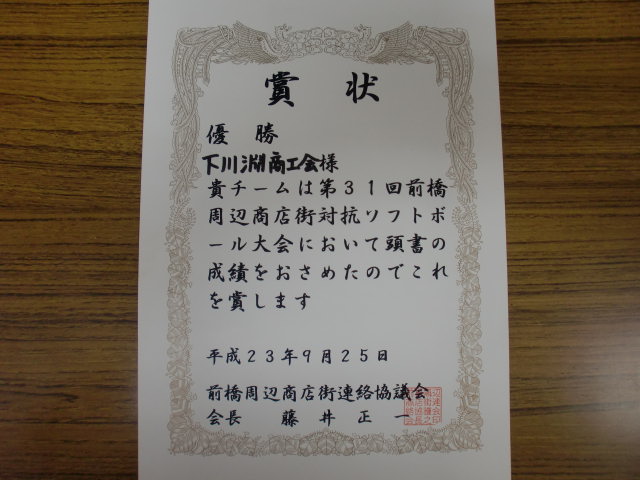 賞状
優勝
下川淵商工会様
貴チームは第３１回前橋
周辺商店街対抗ソフトボ
ール大会において頭書の
成績をおさめたのでこれ
を賞します
平成２３年９月２５日
前橋周辺商店街連絡協議会
会長 藤井正一